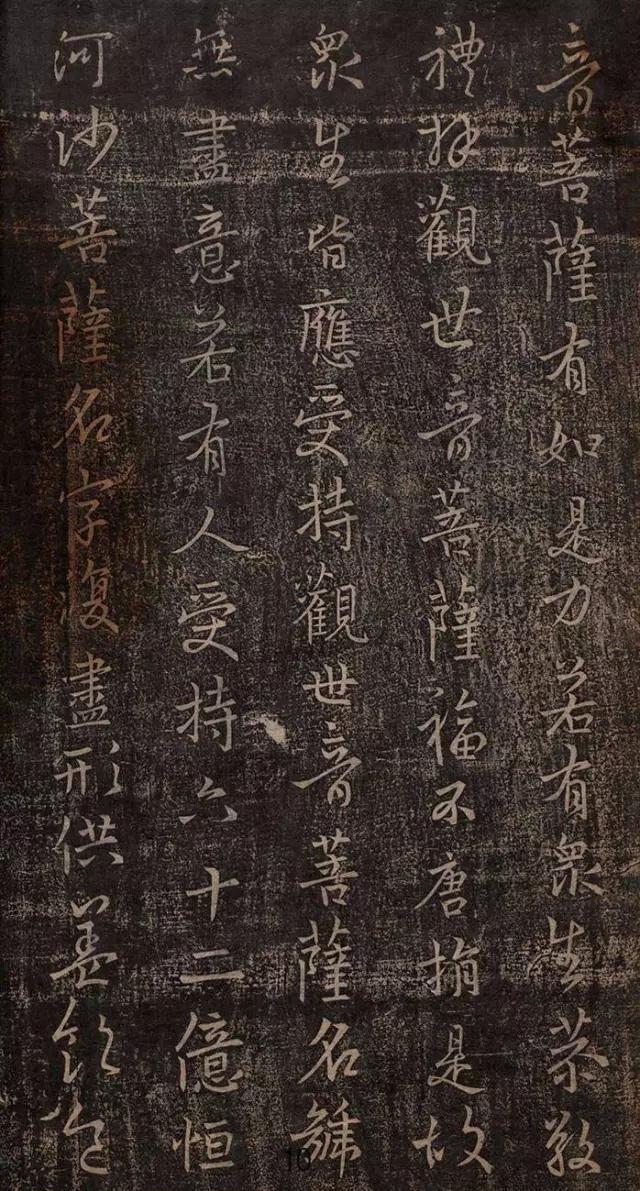 音菩薩有如是力若有眾生恭敬
禮拜觀世音菩薩福不唐捐是故
眾生皆應受持觀世音菩薩名號
無盡意若有人受持六十二億恒
河沙菩薩名字復盡形供養飲食
16